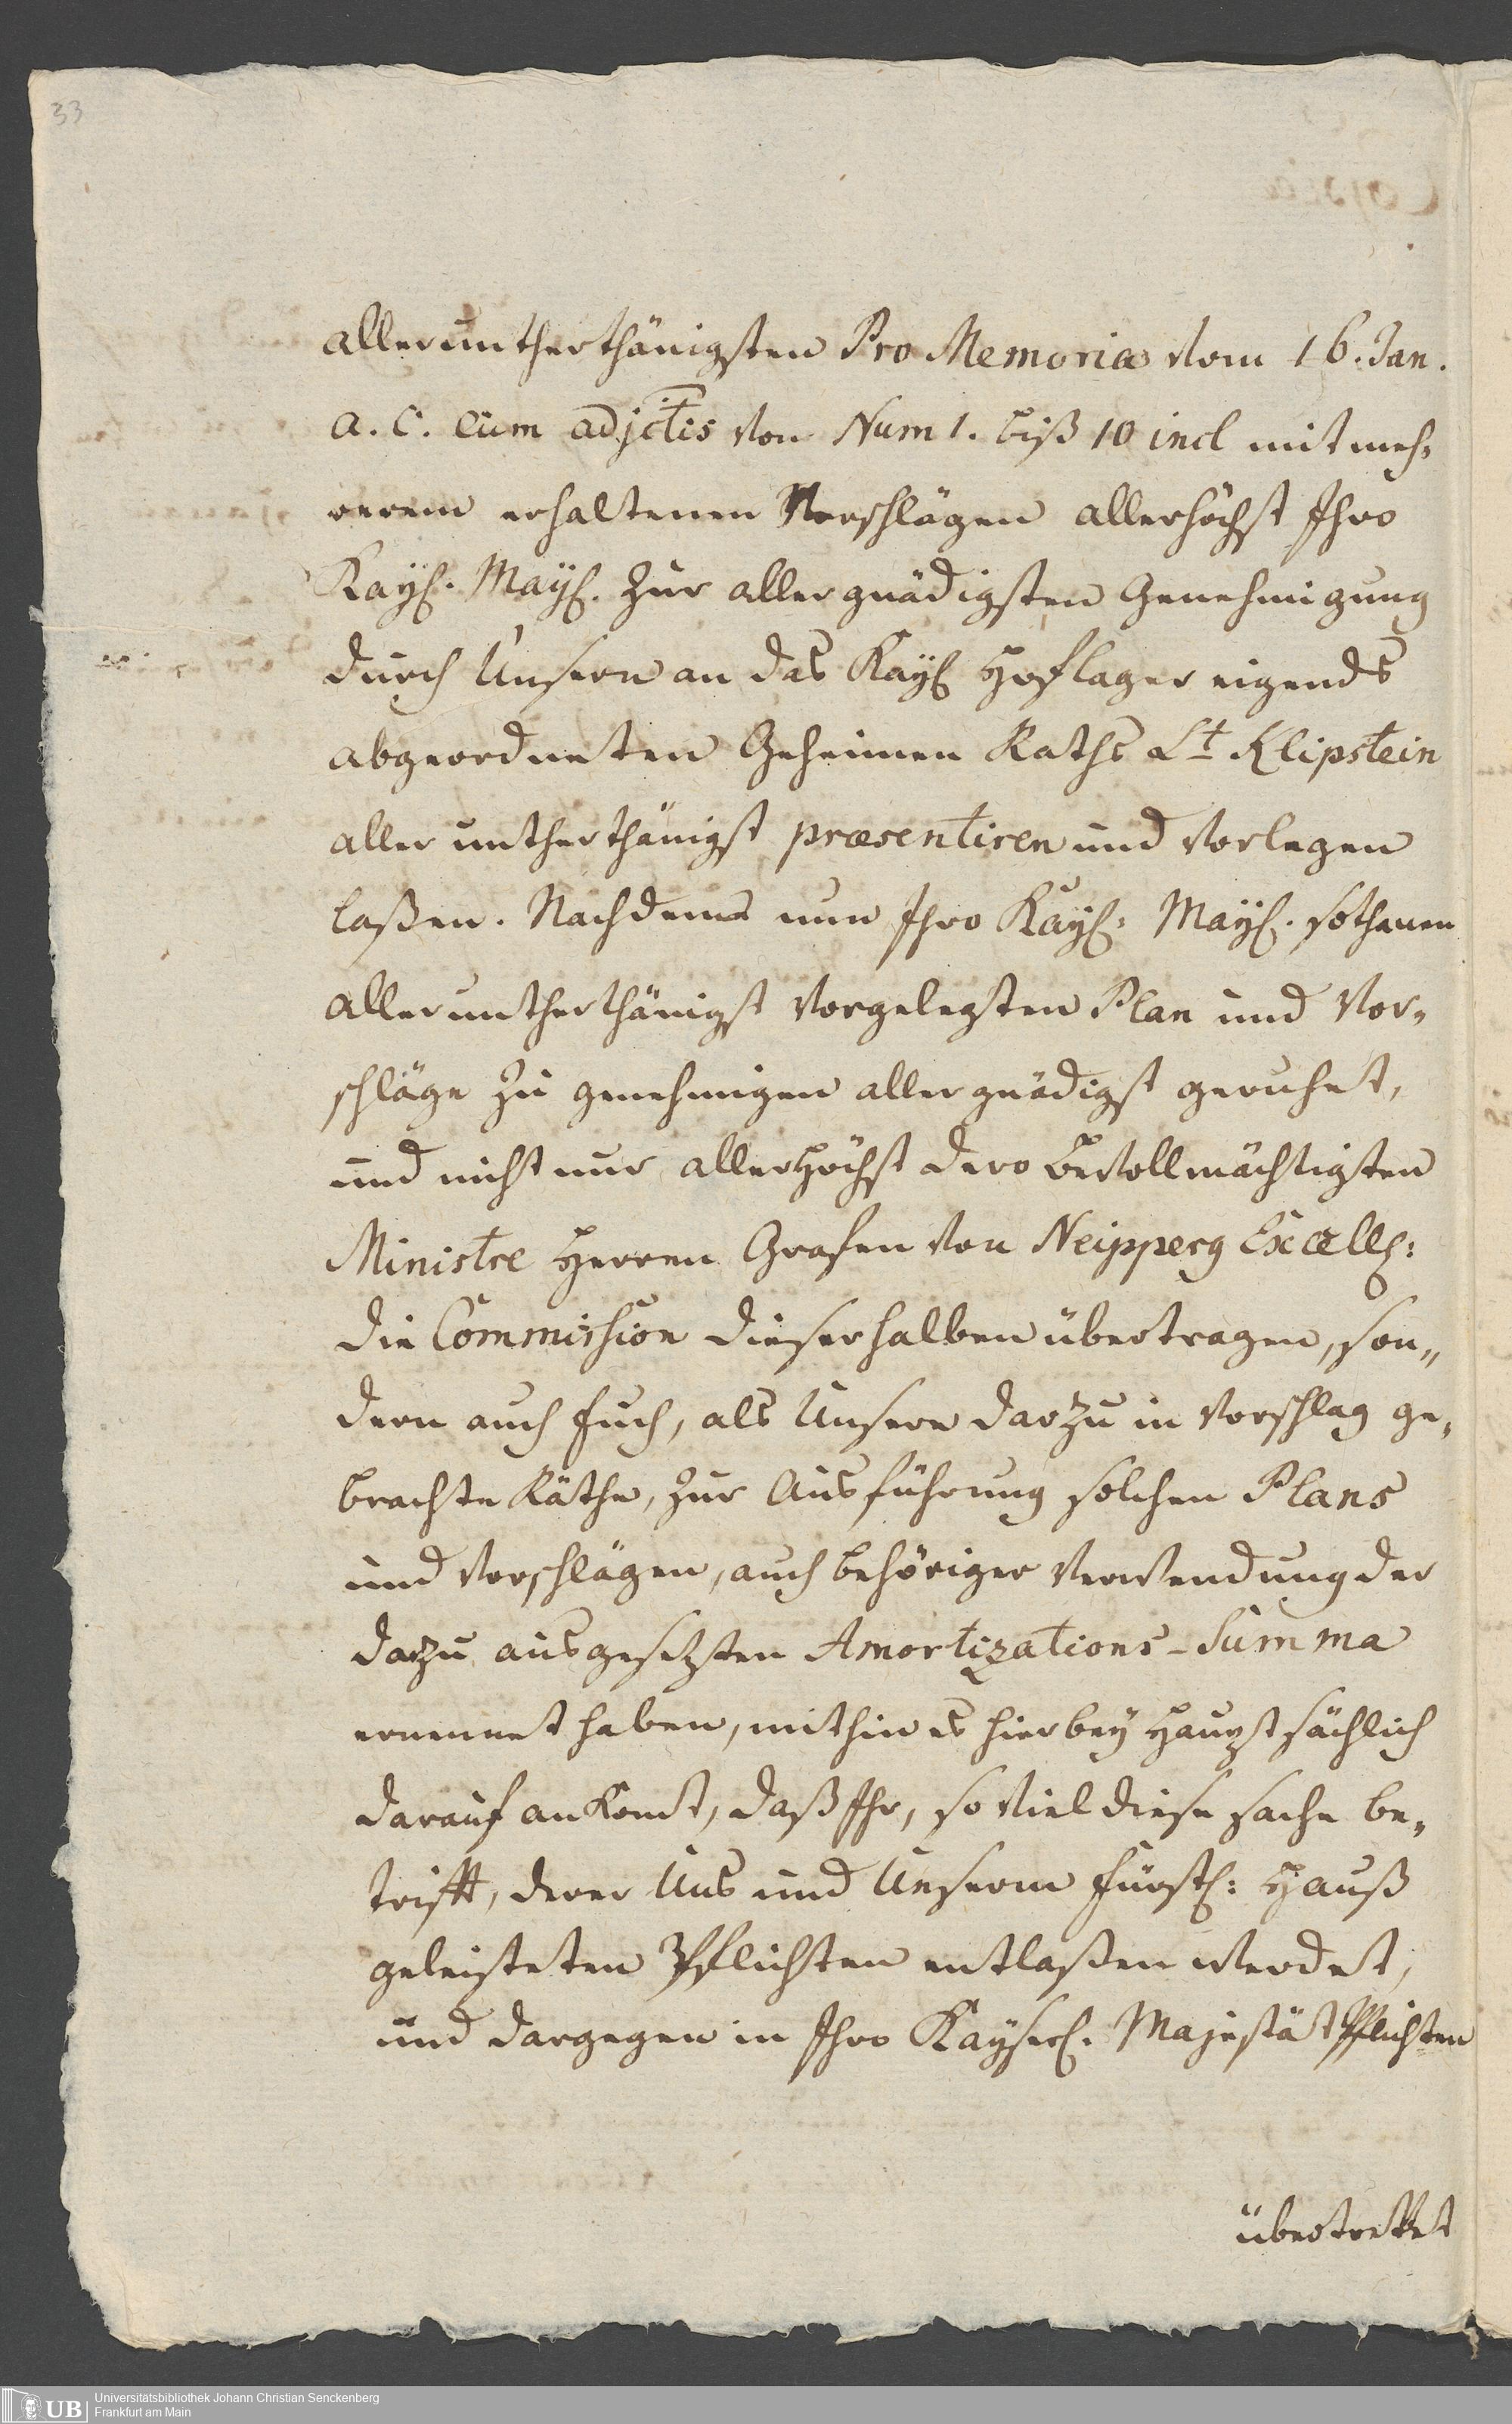 33
allerunterthänigsten Pro Memoria vom 16. Jan.
a. c. cum adjctis von Num 1. biß 10 incl mit meh„
rerem erhaltenen Vorschlägen allerhöchst Ihro
Kayſ. Mayſ. zur allergnädigsten Genehmigung
durch Unsern an das Kayſ Hoflager eigends
abgeordneten Geheimen Raths Lt Klipstein
allerunterthänigst præsentiren und vorlegen
laßen. Nachdeme nun Ihro Kayſ: Mayſ. sothanen
allerunterthänigst vorgelegten Plan und Vor„
schläge zu genehmigen allergnädigst geruhet,
und nicht nur allerhöchst dero bevollmächtigten
Ministre Herren Grafen von Neipperg Excell:
die Commission dieserhalben übertragen, son„
dern auch Euch, als Unsere darzu in Vorschlag ge„
brachte Räthe, zur Ausführung solchen Plans
und Vorschlägen, auch behöriger Verwendung der
dazu ausgesetzten Amortizations-Summa
ernennet haben, mithin es hierbey Hauptsächlich
darauf ankomt, daß Ihr, so viel diese sache be„
trifft, derer Uns und Unserm Fürstl: Hauß
geleisteten Pflichten entlaßen werdet,
und dargegen in Ihro Kayserl. Majestät Pflichten
übertrettet
UB
Universitätsbibliothek Johann Christian Senckenberg
Frankfurt am Main